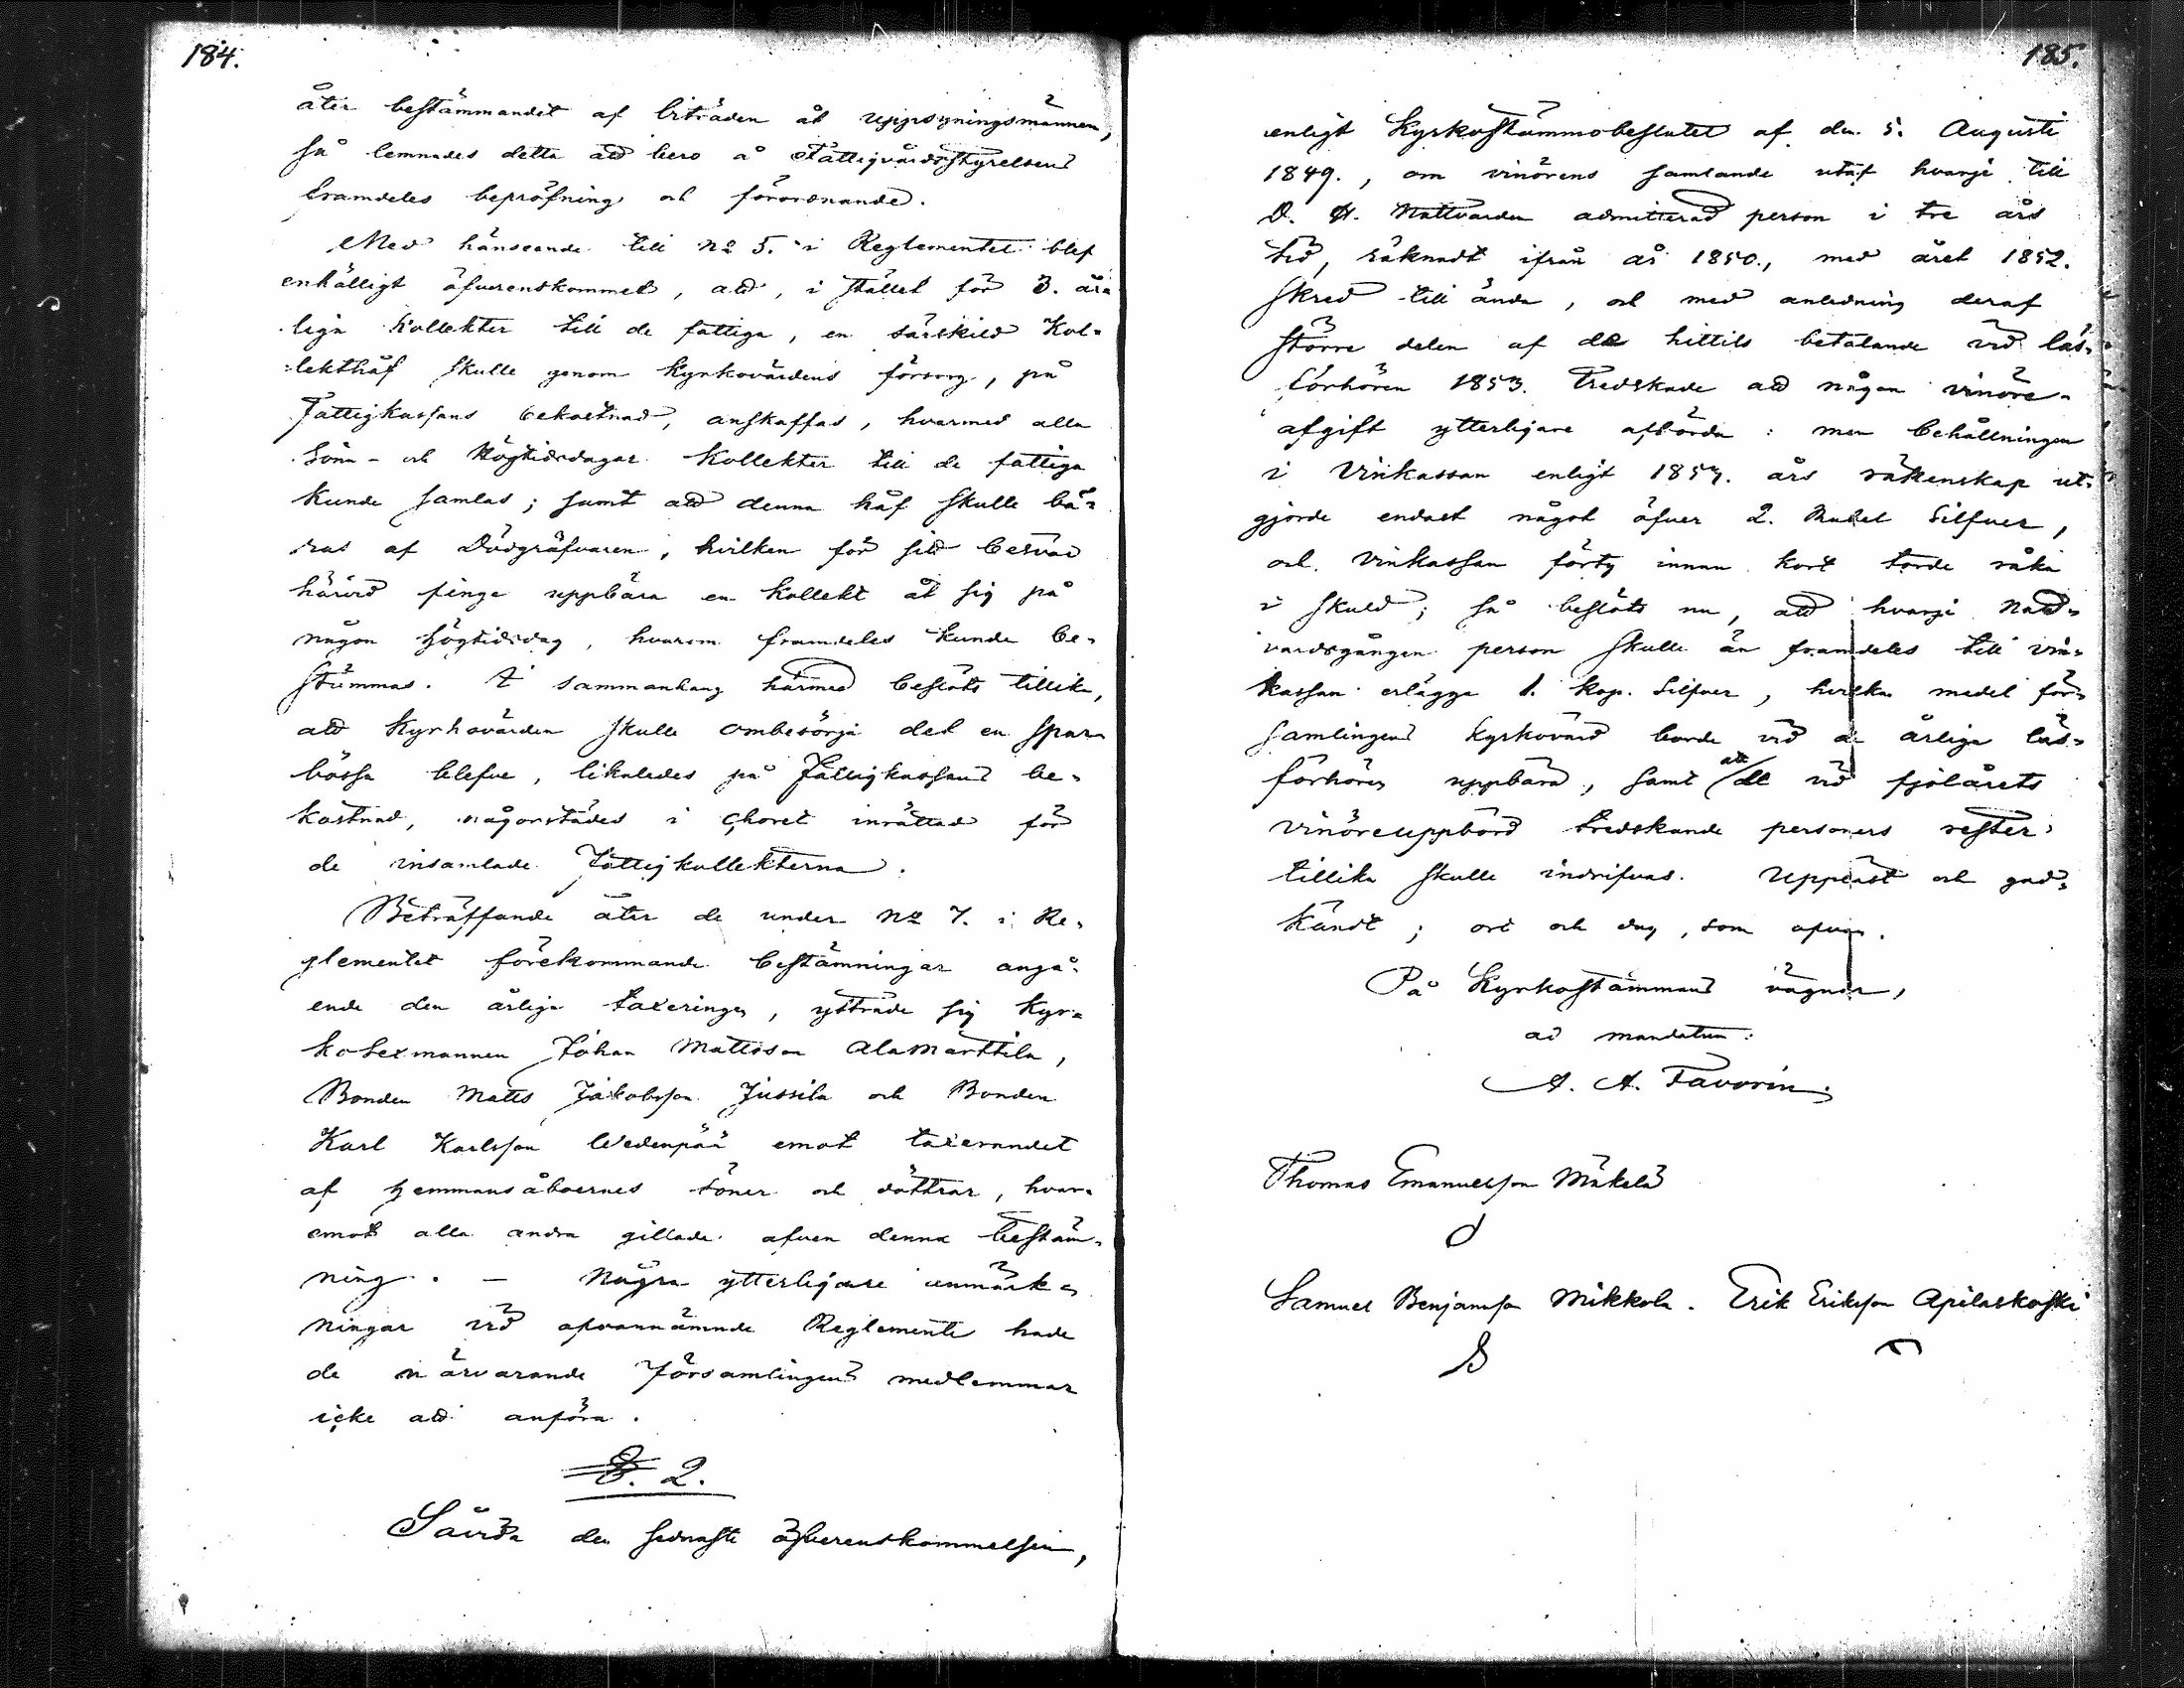 184.
åter bestämmandet af biträden åt uppsyningsmännen,
så lemnades detta att bero å Fattigvårdsstyrelsens
framdeles bepröfning och förordnande.
Med hänseende till No 5. i Reglementet blef
enhälligt öfverenskommet, att, i stället för 3. år-
liga Kollekter till de fattiga, en särskild Kol-
lekthåf skulle genom Kyrkovärdens försorg, på
Fattigkassans bekostnad, anskaffas, hvarmed alla
Sönn- och Högtidsdagar Kollekter till de fattiga
kunde samlas; samt att denna håf skulle bä-
ras af Dödgräfvaren, hvilken för sitt besvär
härvid finge uppbära en Kollekt åt sig på
någon Högtidsdag, hvarom framdeles kunde be-
stämmas. I sammanhang härmed beslöts tillika,
att Kyrkovärden skulle ombesörja det en spar-
bössa blefve, likaledes på Fattigkassans be-
kostnad, någorstädes i Choret inrättad för
de insamlade Fattigkollekterna.
Beträffande åter de under No 7. i Re-
glementet förekommande bestämningar angå-
ende den årliga taxeringen, yttrade sig Kyr-
kosexmannen Johan Mattsson Alamarttila,
Bonden Matts Jakobsson Jussila och Bonden
Karl Karlsson Wedenpää emot taxerandet
af hemmansåboernes söner och döttrar, hvar-
emot alla andra gillade äfven denna bestäm-
ning. - Några ytterligare anmärk-
ningar vid ofvannämnde Reglemente hade
de närvarande Församlingens medlemmar
icke att anföra.
§. 2.
Såvida den sednaste öfverenskommelsen,
185.
enligt Kyrkostämmobeslutet af den 5. Augusti
1849., om vinörens samlande utaf hvarje till
D. H. Nattvarden admitterad person i tre års
tid, räknadt ifrån år 1850., med året 1852.
skred till ända, och med anledning deraf
större delen af de hittils betalande vid läs-
förhören 1853. tredskade att någon vinöre-
afgift ytterligare afbörda: men behållningen
i Vinkassan enligt 1857. års räkenskap ut-
gjorde endast något öfver 2. Rubel Silfver,
och Vinkassan förty innan kort torde råka
i skuld; så beslöts nu, att hvarje Natt-
vardsgången person skulle än framdeles till vin-
kassan erlägga 1. kop. Silfver, hvilka medel för-
samlingens Kyrkovärd borde vid de årliga läs-
förhören uppbära, samt att de vid fjolårets
vinöreuppbörd tredskande personers rester
tillika skulle indrifvas. Uppläst och god-
kändt; ort och dag, som ofvan.
På Kyrkostämmans vägnar,
ad mandatum:
A. A. Favorin.
Thomas Emanuelsson Mäkelä
Samuel Benjamsson Mikkola. Erik Eriksson Apilaskoski